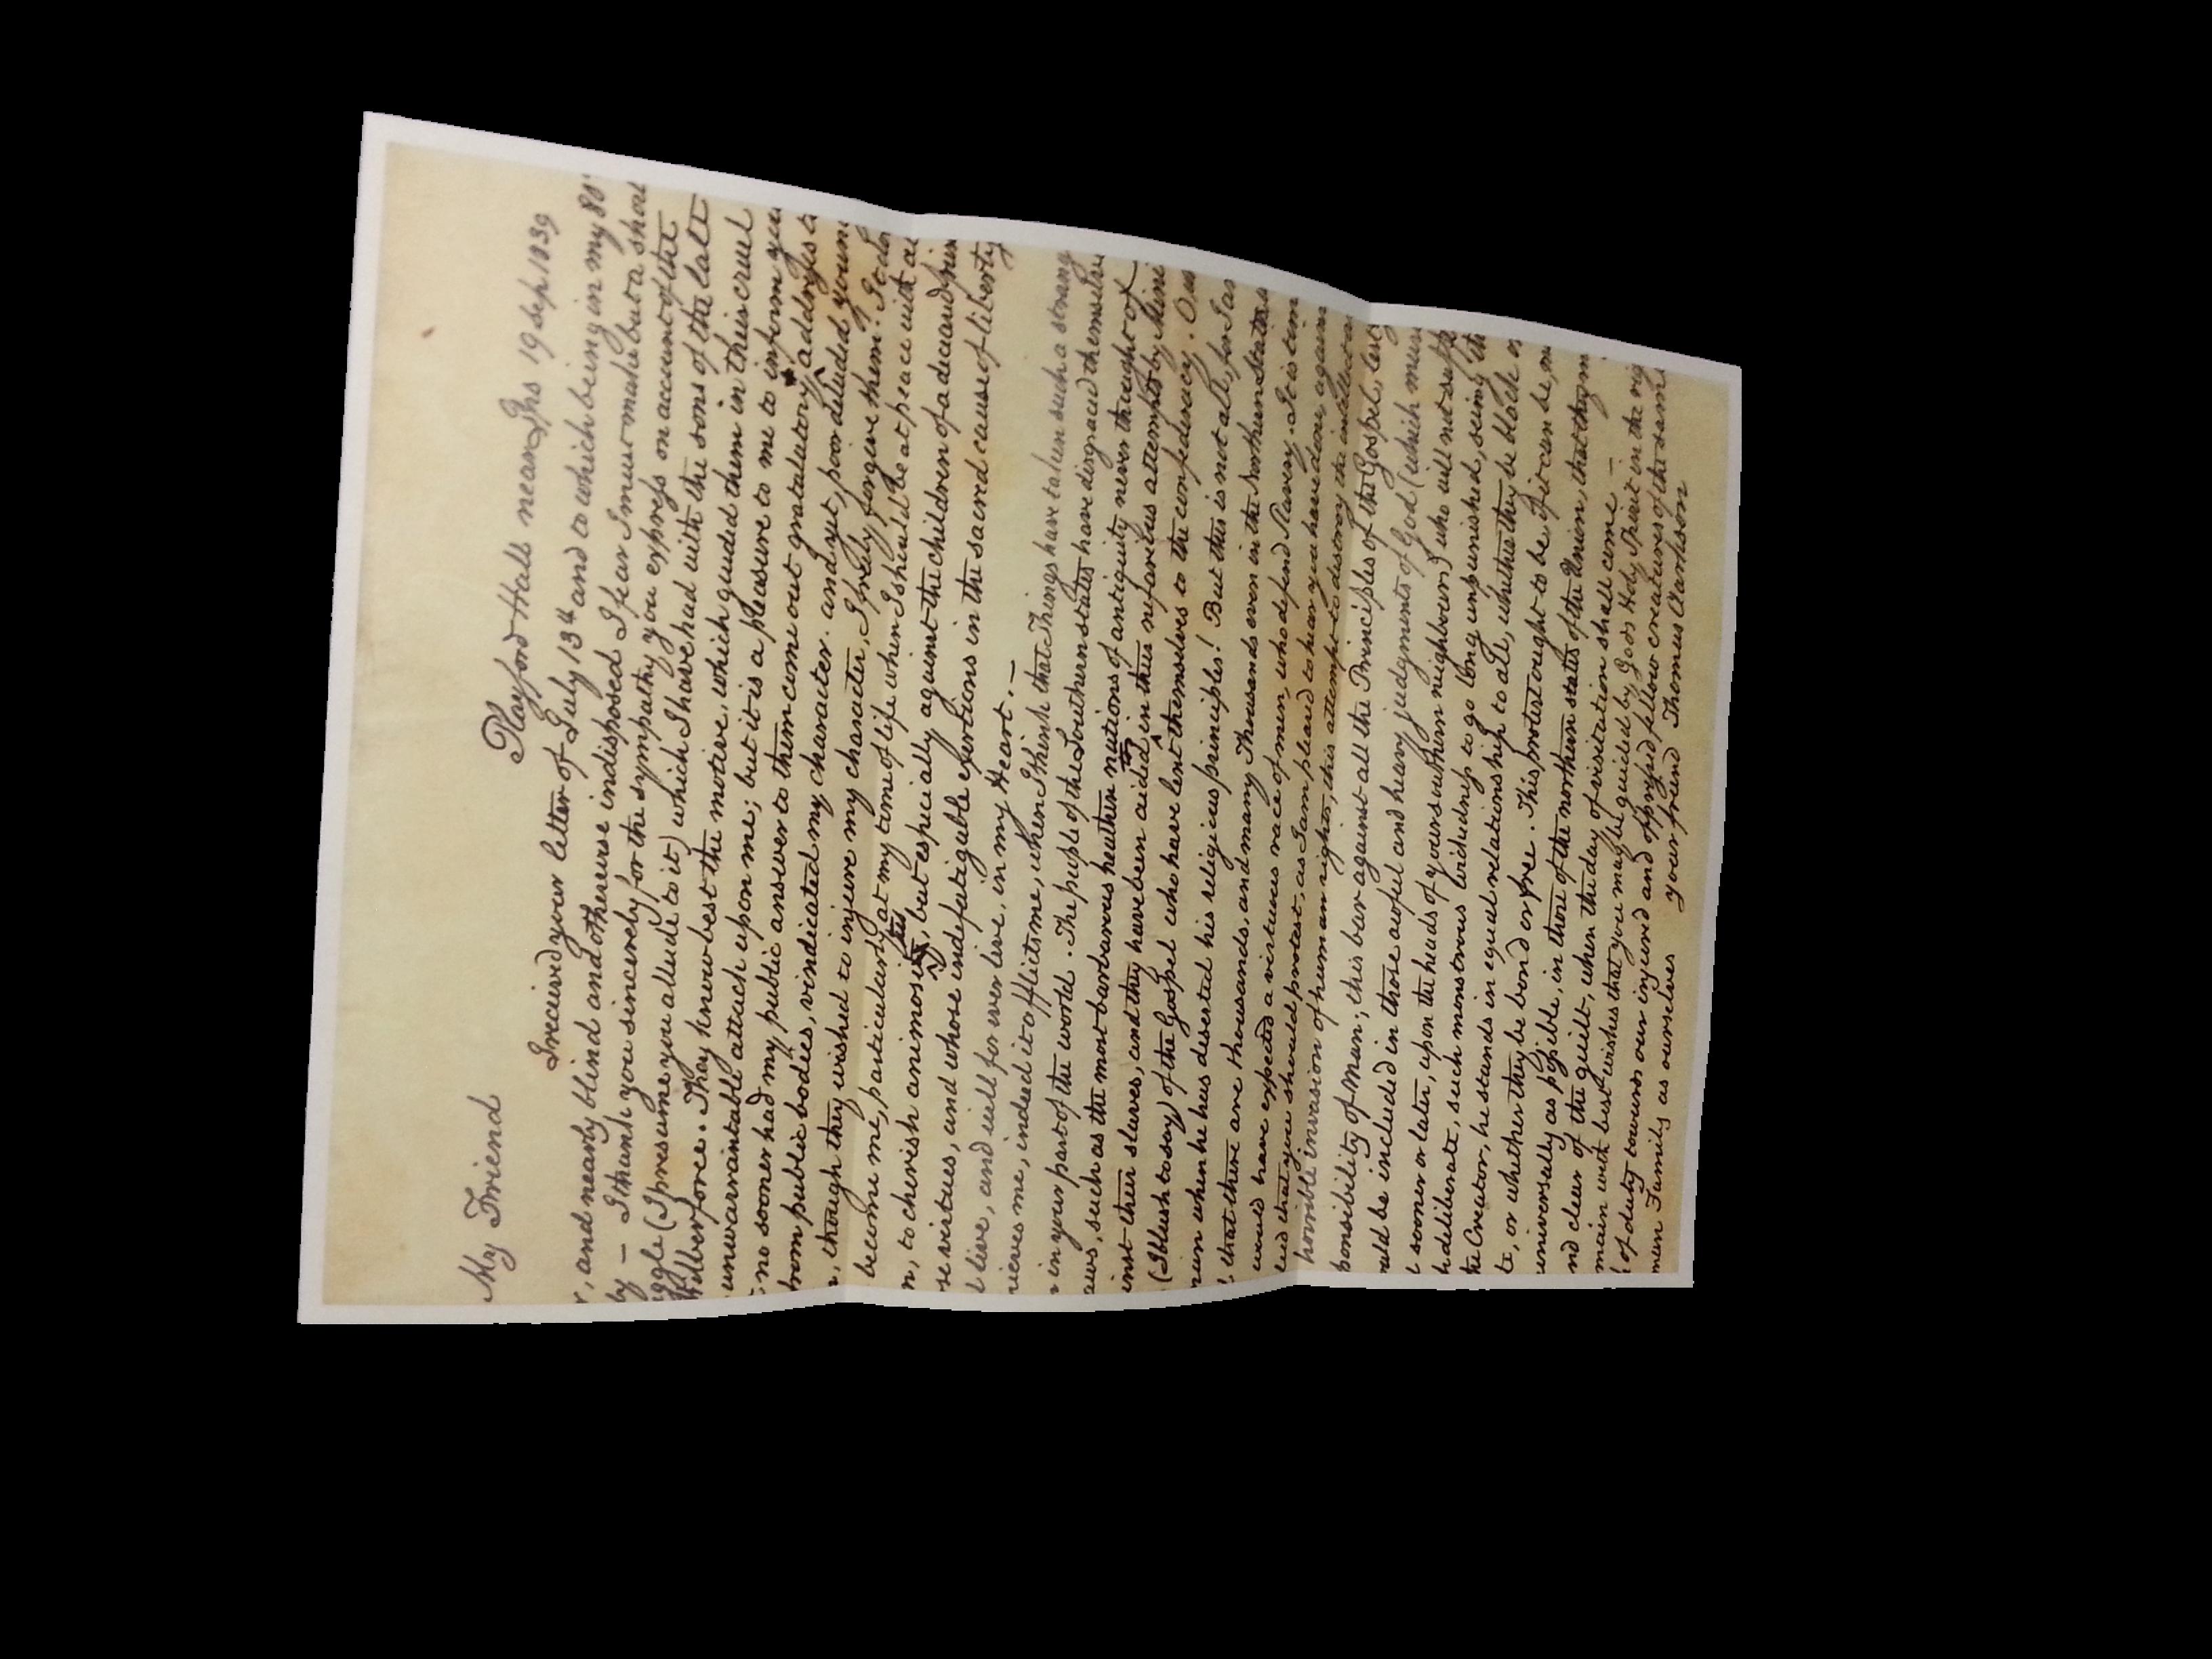 Playford Hall near Ips 19 Sep 1839
My Friend
I received your letter of July 13th and to which being in my 80
and nearly blind and otherwise indisposed I fear I must make but a short
I thank you sincerely for the sympathy you express on account of the
(I presume you allude to it) which I have had with the sons of the late
Wilberforce. They know best the motive, which guided them in their cruel
unwarrantable attack upon me; but it is a pleasure to me to inform you
no sooner had my public answer to them come out gratulatory addresses
from public bodies, vindicated my character. and yet, poor deluded young
, though they wished to injure my character, I freely forgive them. It
become me, particularly at my time of life when I should be at peace with
, to cherish animosities, but especially against the children of a deceased
se virtues, and whose indefatigable exertions in the sacred cause of liberty
live, and will for ever live, in my Heart. —
ieves me, indeed it afflicts me, when I think that Things have taken such a strang
in your part of the world. The people of the Southern states have disgraced themselve
aws, such as the most barbarous heathen nations of antiquity never thought of
inst their slaves, and they have been aided in this nefarious attempt by Mini
(I blush to say) of the Gospel who have lent themselves to the confederacy.
when he has deserted his religious principles! But this is not all, for I
that there are thousands, and many Thousands even in the Northern States
would have expected a virtuous race of men, who defend Slavery. It is tim
that you should protest, as I am pleased to hear you have done, again
horrible invasion of human rights, this attempt to destroy the intellect
ponsibility of man; this bar against all the Principles of the Gospel, lest
uld be included in those awful and heavy judgments of God (which mus
sooner or later, upon the heads of your southern neighbours) who will not suff
deliberate, such monstrous wickedness to go long unpunished, seeing th
the Creator, he stands in equal relationship to all, whether they be black or
te, or whether they be bond or free. This protest ought to be, if it can be, m
universally as possible, in those of the northern states of the Union, that they m
nd clear of the guilt, when the day of visitation shall come —
main with best wishes that you may be guided by Gods Holy Spirit in the rig
of duty towards our injured and oppressed fellow creatures of the same
man Family as ourselves your friend Thomas Clarkson